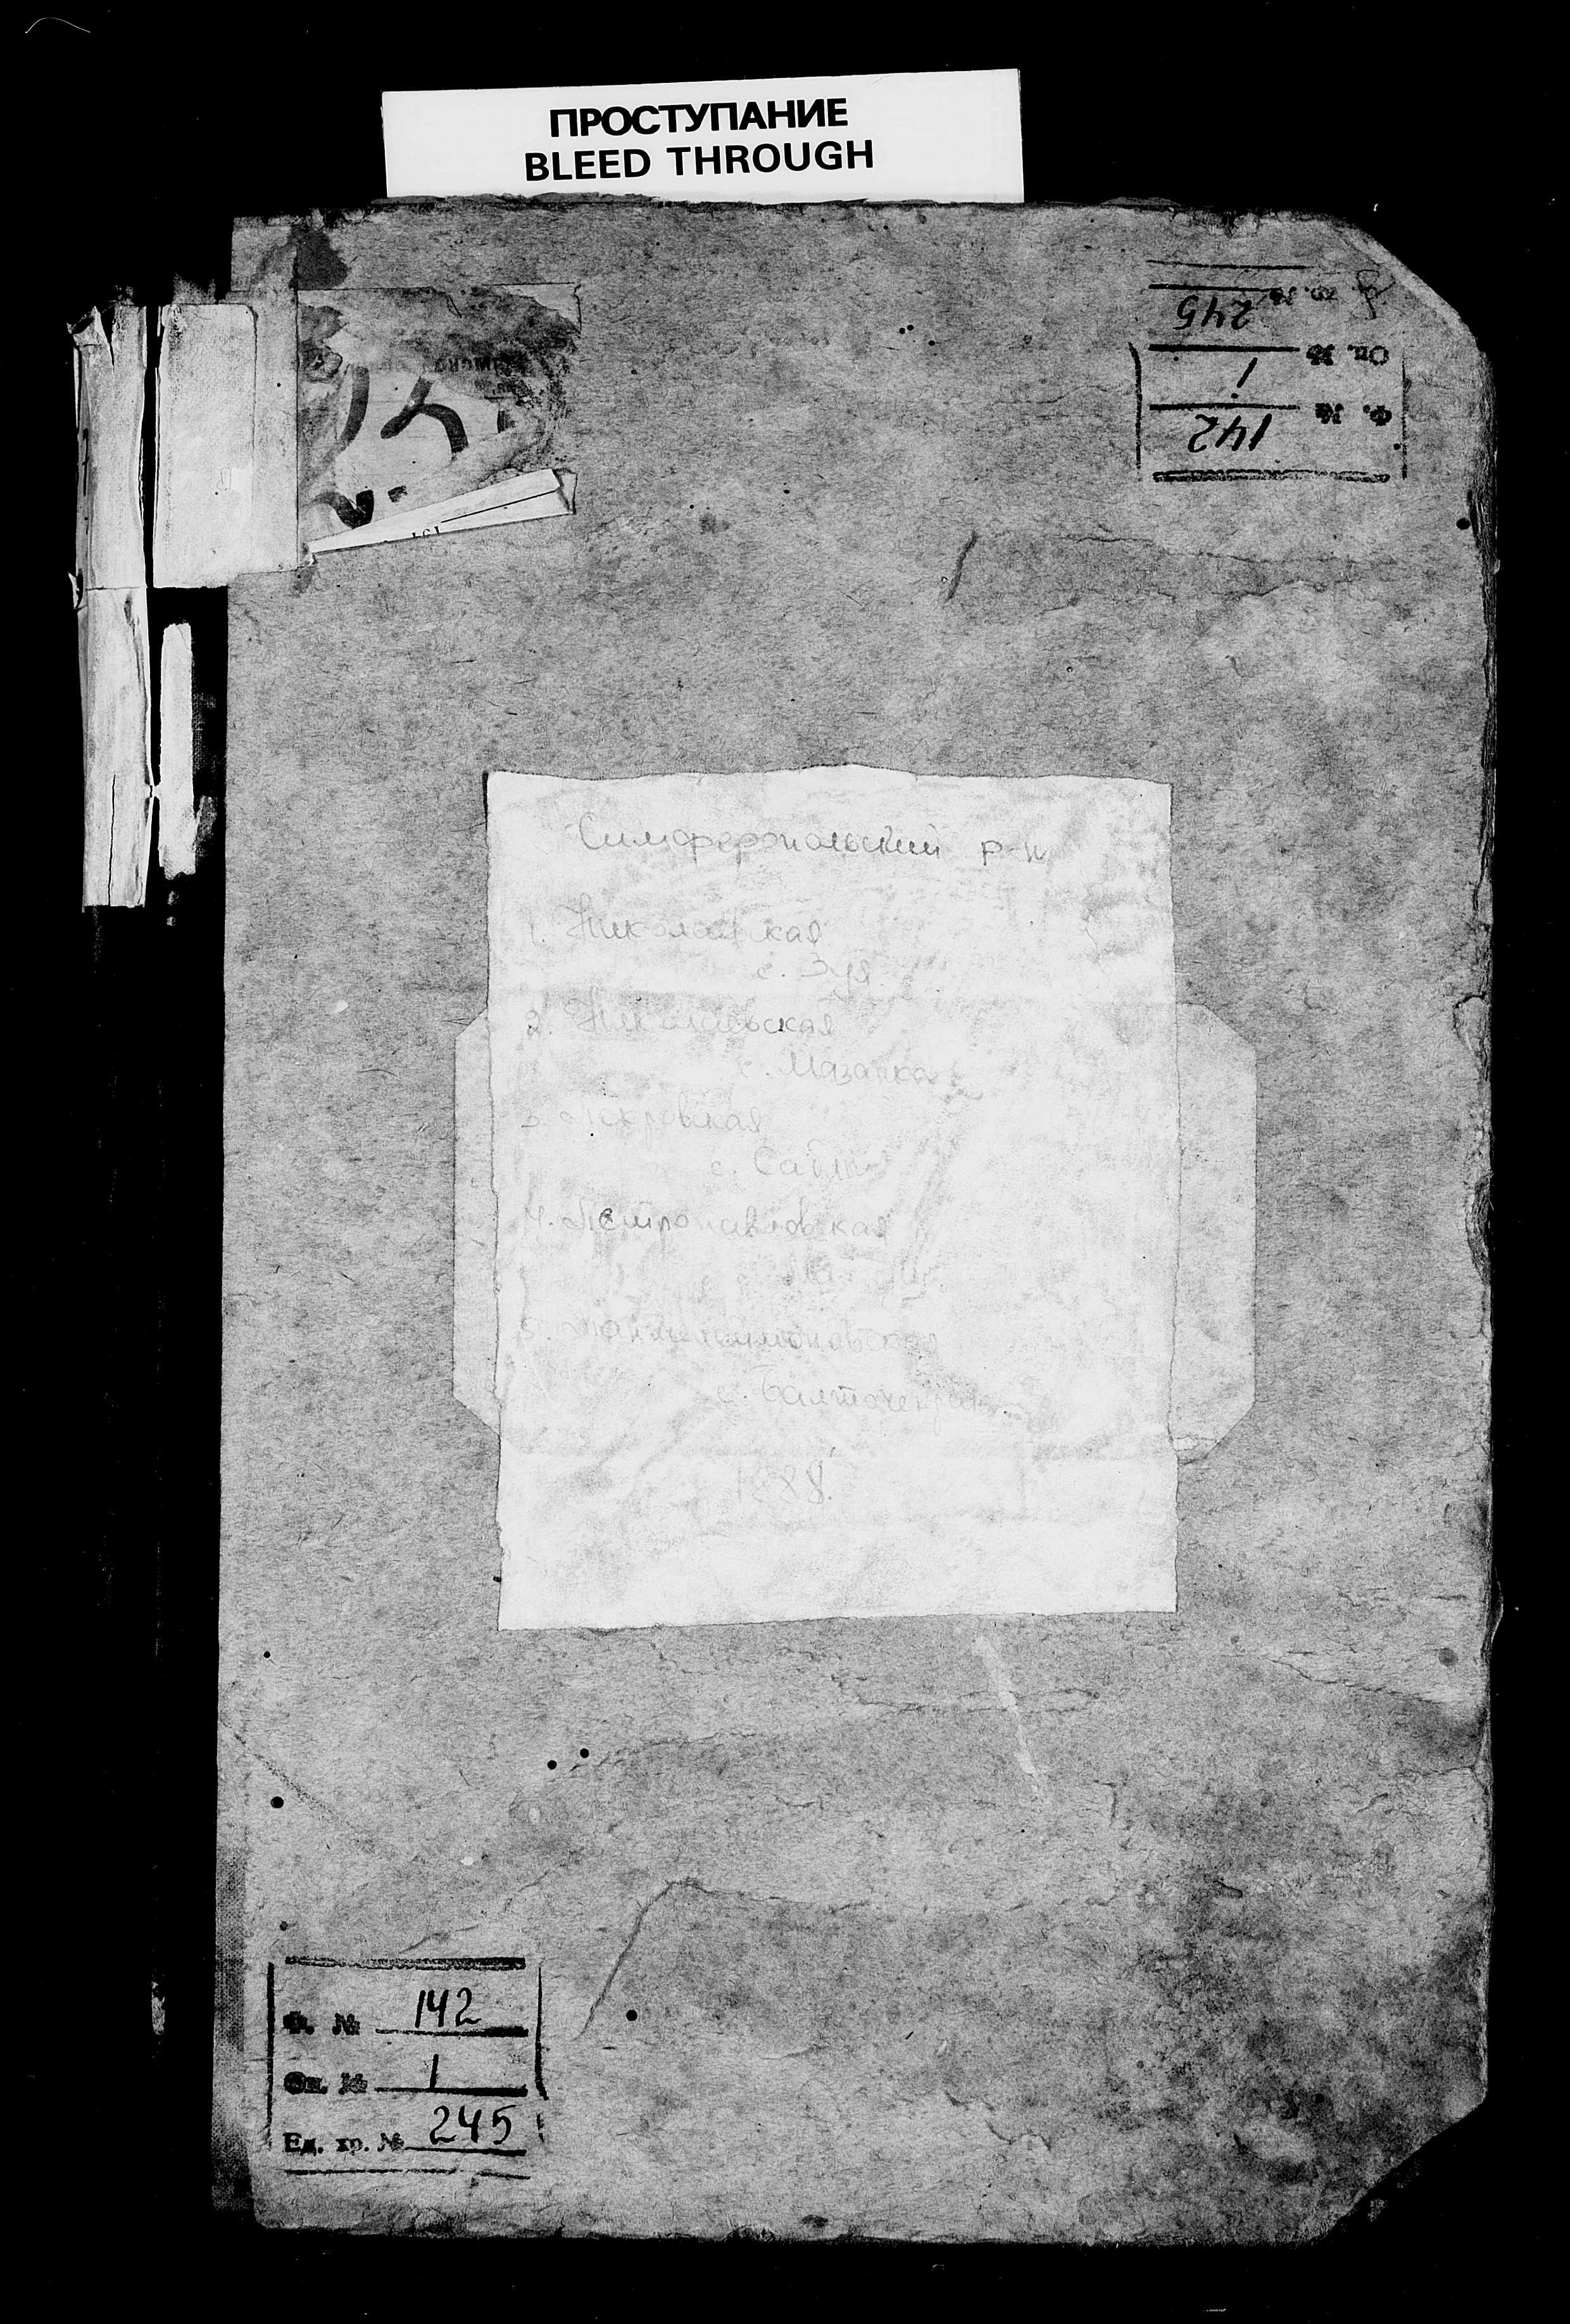 ПРОСТУПАНИЕ
BLEED THROUGH
Ед. хр. № 245
Оп. № 1
Ф. № 142
Симферопольский р-н
1. Николаевская
с. Зуя
2. Николаевская
с. Мазанка
3. Покровская
с. Саблы
4. Петропавловская
с.
5. Пантелеимоновская
с.
1888
Ф. № 142
Оп. № 1
Ед. хр. № 245